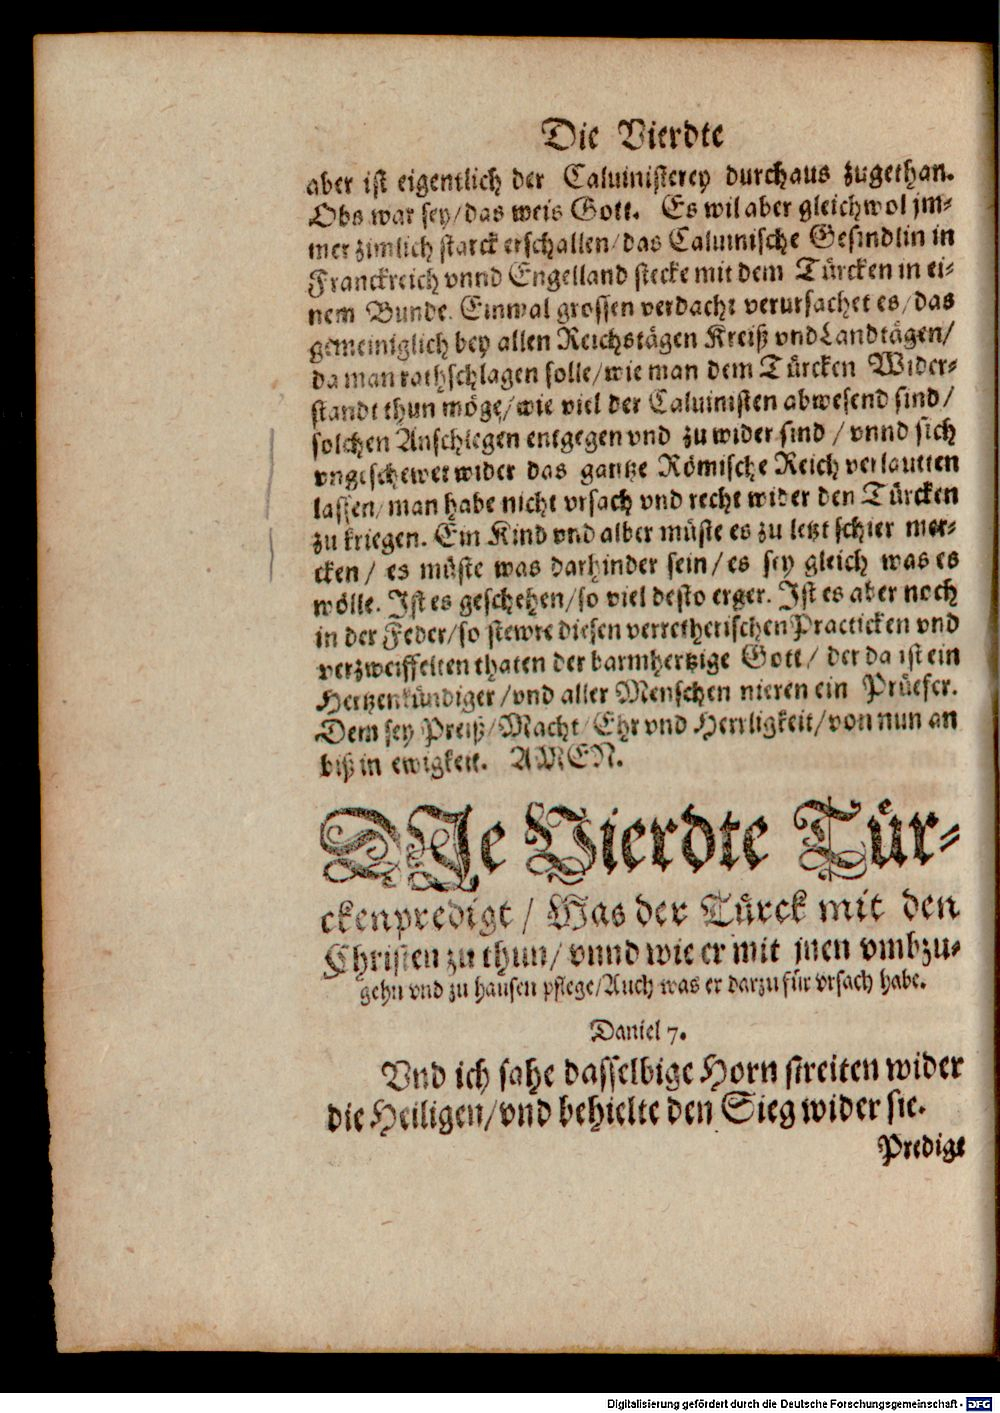 Die Vierdte
aber ist eigentlich der Caluinisterey durchaus zugethan.
Obs war sey/das weis Gott. Es wil aber gleichwol jm-
mer zimlich starck erschallen/das Caluinische Gesindlin in
Franckreich vnnd Engelland stecke mit dem Türcken in ei-
nem Bunde. Einmal grossen verdacht verursachet es/das
gemeiniglich bey allen Reichstägen Kreiß vnd Landtägen/
da man rathschlagen solle/wie man dem Türcken Wider-
standt thun möge/wie viel der Caluinisten abwesend sind/
solchen Anschlegen entgegen vnd zu wider sind/vnnd sich
vngeschewet wider das gantze Römische Reich verlautten
lassen/man habe nicht vrsach vnd recht wider den Türcken
zu kriegen. Ein Kind vnd alber müste es zu letzt schier mer-
cken/es müste was darhinder sein/es sey gleich was es
wölle. Ist es geschehen/so viel desto erger. Ist es aber noch
in der Feder/so stewre diesen verretherischen Practicken vnd
verzweiffelten thaten der barmhertzige Gott/der da ist ein
Hertzenkündiger/vnd aller Menschen nieren ein Prüefer.
Dem sey Preiß/Macht/Ehr vnd Herrligkeit/von nun an
biß in ewigkeit. AMEN.
DIe Vierdte Tür-
ckenpredigt/Was der Türck mit den
Christen zu thun/vnnd wie er mit jnen vmbzu-
gehn vnd zu hausen pflege/Auch was er darzu für vrsach habe.
Daniel 7.
Vnd ich sahe dasselbige Horn streiten wider
die Heiligen/vnd behielte den Sieg wider sie.
Predigt
Digitalisierung gefördert durch die Deutsche Forschungsgemeinschaft - DFG